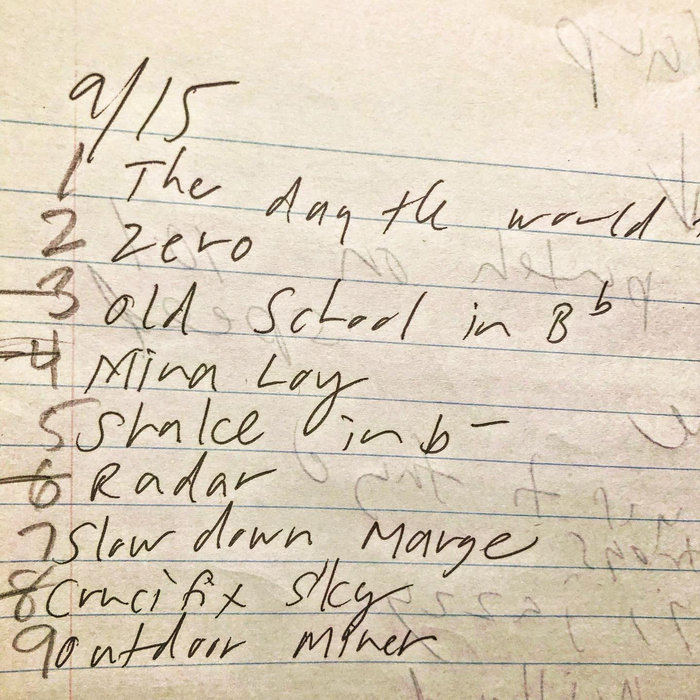 9/15
1 The day the world
2 Zero
3 Old School in Bb
4 Mina Loy
5 Shake in b-
6 Radar
7 Slow down Marge
8 Crucifix Sky
9 Outdoor Miner